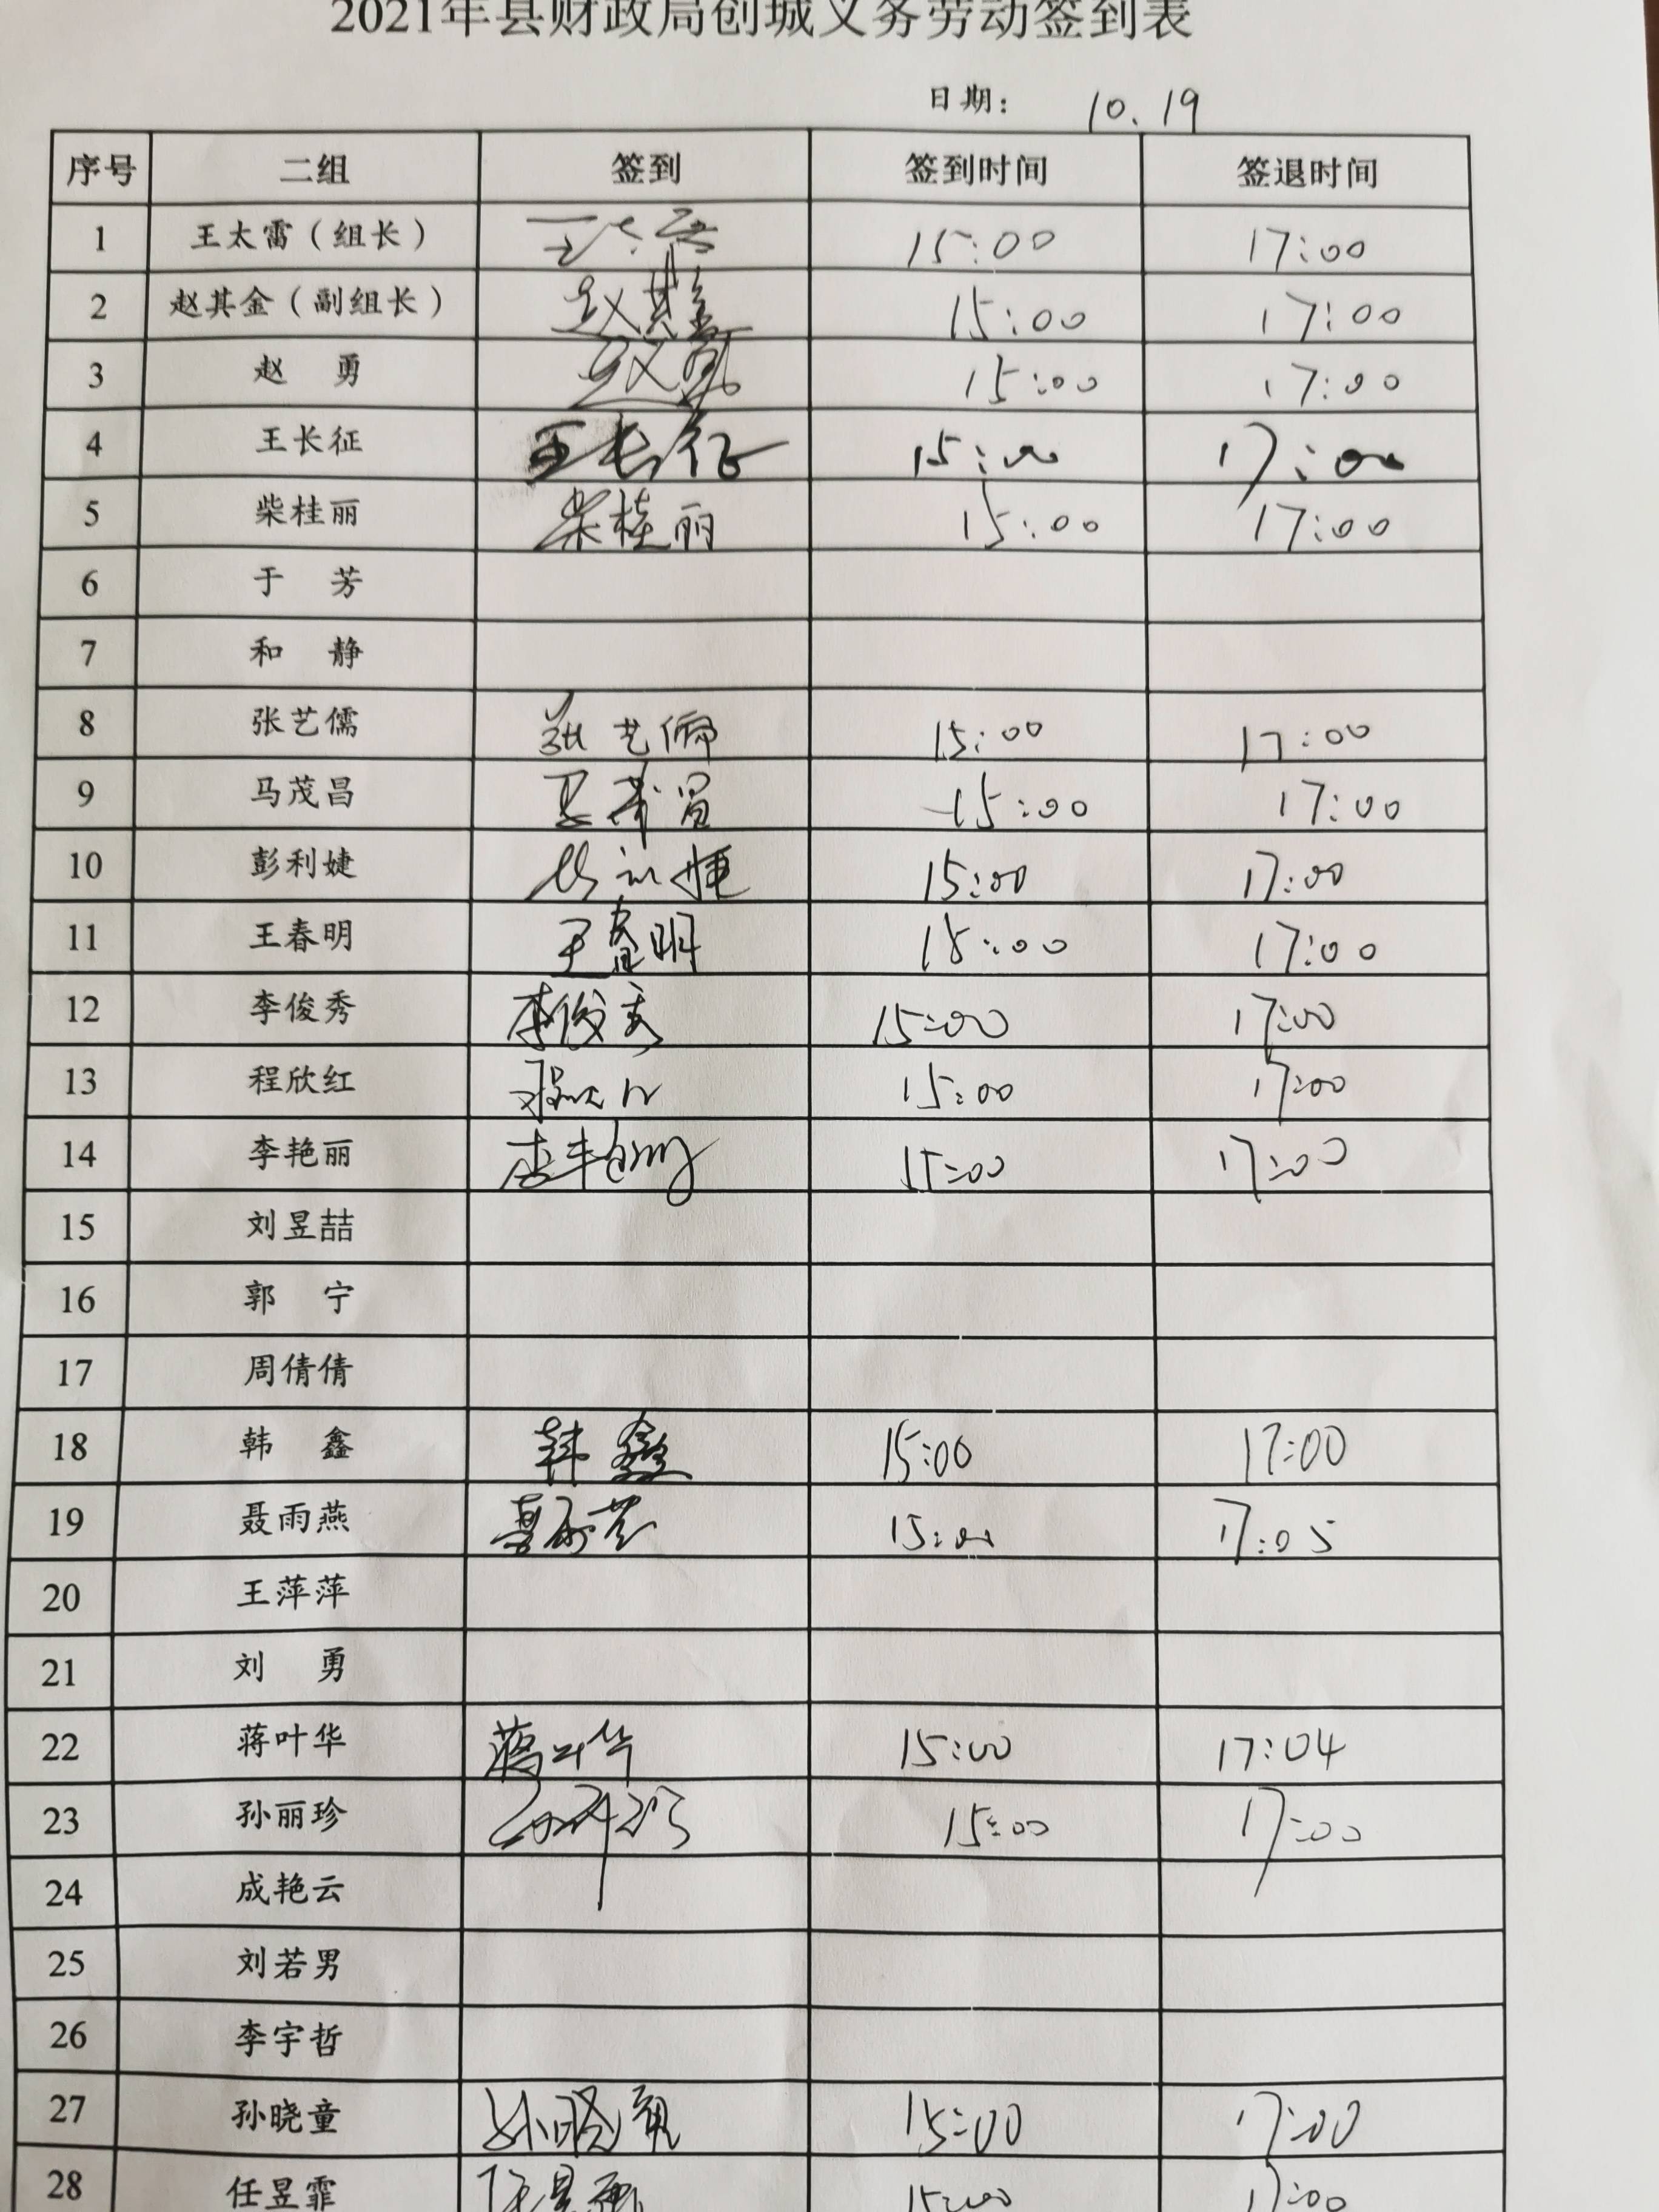 2021年县财政局创城义务劳动签到表
日期： 10.19
序号 二组 签到 签到时间 签退时间
1 王太雷（组长） 王太雷 15:00 17:00
2 赵其金（副组长） 赵其金 15:00 17:00
3 赵 勇 赵勇 15:00 17:00
4 王长征 王长征 15:00 17:00
5 柴桂丽 柴桂丽 15:00 17:00
6 于 芳
7 和 静
8 张艺儒 张艺儒 15:00 17:00
9 马茂昌 马茂昌 15:00 17:00
10 彭利婕 彭利婕 15:00 17:00
11 王春明 王春明 15:00 17:00
12 李俊秀 李俊秀 15:00 17:00
13 程欣红 程欣红 15:00 17:00
14 李艳丽 李艳丽 15:00 17:00
15 刘昱喆
16 郭 宁
17 周倩倩
18 韩 鑫 韩鑫 15:00 17:00
19 聂雨燕 聂雨燕 15:00 17:05
20 王萍萍
21 刘 勇
22 蒋叶华 蒋叶华 15:00 17:04
23 孙丽珍 孙丽珍 15:00 17:00
24 成艳云
25 刘若男
26 李宇哲
27 孙晓童 孙晓童 15:00 17:00
28 任昱霏 任昱霏 15:00 17:00